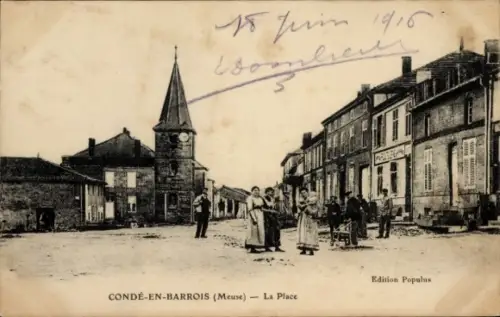 18 Juin 1916
Edition Populus
CONDÉ-EN-BARROIS (Meuse) — La Place